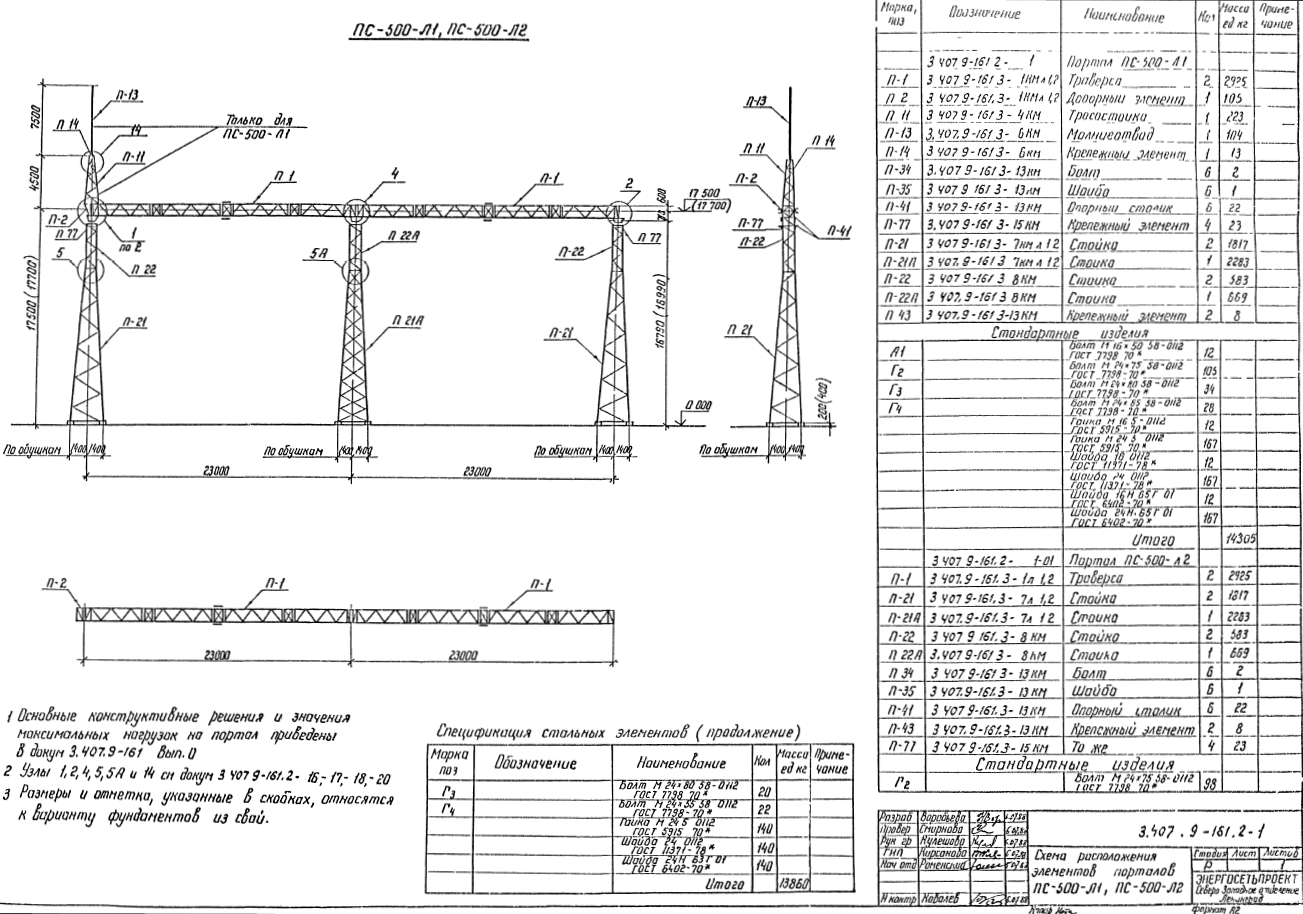 ПС-500-Л1, ПС-500-Л2
П-13
П 14
14
Только для
ПС-500-Л1
П-11
7500
4500
П 1
4
П-1
2
600
17 500
(17 700)
П-2
П 77
1
по 2
5
П 22
5А
П 22А
П-22
П 77
17500 (17700)
16790 (16990)
П-21
П 21А
П-21
0 000
По обушкам
1400 1400
По обушкам
1400 1400
По обушкам
1400 1400
23000
23000
П-13
П 14
П 11
П-2
П-77
П-41
П-22
П 21
200(400)
По обушкам
1400 1400
П-2
П-1
П-1
23000
23000
1 Основные конструктивные решения и значения
максимальных нагрузок на портал приведены
в докум 3.407.9-161 Вып. 0
2 Узлы 1,2,4,5,5А и 14 см докум 3 407 9-161.2- 16,-17,-18,-20
3 Размеры и отметка, указанные в скобках, относятся
к варианту фундаментов из свай.
Спецификация стальных элементов (продолжение)
Марка поз Обозначение Наименование Кол Масса ед кг Приме-чание
Г3 Болт М 24×80 58-0112 ГОСТ 7798 70* 20
Г4 Болт М 24×55 58 0112 ГОСТ 7798-70* 22
Гайка М 24 5 0112 ГОСТ 5915 70* 140
Шайба 24 0112 ГОСТ 11371-78* 140
Шайба 24Н 63Г 01 ГОСТ 6402-70* 140
Итого 13860
Марка, поз Обозначение Наименование Кол Масса ед кг Приме-чание
3 407 9-161 2- 1 Портал ПС-500-Л1
П-1 3 407 9-161 3- 1КМл1,2 Траверса 2 2925
П 2 3 407 9-161.3- 1КМл1,2 Доборный элемент 1 105
П 11 3 407 9-161 3- 4КМ Тросостойка 1 223
П-13 3.407 9-161 3- 6КМ Молниеотвод 1 104
П-14 3 407 9-161 3- 6км Крепежный элемент 1 13
П-34 3.407 9-161 3- 13км Болт 6 2
П-35 3 407 9 161 3- 13км Шайба 6 1
П-41 3 407 9-161 3- 13КМ Опорный столик 6 22
П-77 3.407 9-161 3- 15КМ Крепежный элемент 4 23
П-21 3 407 9-161 3- 7км л 1 2 Стойка 2 1817
П-21А 3 407. 9-161 3 7км л 1 2 Стойка 1 2283
П-22 3 407 9-161 3 8КМ Стойка 2 583
П-22А 3 407. 9-161 3 8КМ Стойка 1 669
П 43 3 407.9-161 3-13КМ Крепежный элемент 2 8
Стандартные изделия
А1 Болт М 16×50 58-0112 ГОСТ 7798 70* 12
Г2 Болт М 24×75 58-0112 ГОСТ 7798-70* 105
Г3 Болт М 24×80 58-0112 ГОСТ 7798-70* 34
Г4 Болт М 24×85 58-0112 ГОСТ 7798-70* 28
Гайка М 16 5-0112 ГОСТ 5915-70* 12
Гайка М 24 5 0112 ГОСТ 5915 70* 167
Шайба 16 0112 ГОСТ 11371-78* 12
Шайба 24 0112 ГОСТ 11371-78* 167
Шайба 16Н 65Г 01 ГОСТ 6402-70* 12
Шайба 24Н.65Г 01 ГОСТ 6402-70* 167
Итого 14305
3 407 9-161.2- 1-01 Портал ПС-500-л2
П-1 3 407.9-161.3-1л 1,2 Траверса 2 2925
П-21 3 407.9-161.3- 7л 1,2 Стойка 2 1817
П-21А 3 407.9-161.3- 7л 1 2 Стойка 1 2283
П-22 3 407 9 161.3- 8КМ Стойка 2 583
П 22А 3.407.9-161 3- 8КМ Стойка 1 669
П 34 3 407 9-161.3- 13КМ Болт 6 2
П-35 3 407.9-161.3- 13КМ Шайба 6 1
П-41 3 407.9-161.3- 13КМ Опорный столик 6 22
П-43 3 407.9-161.3- 13КМ Крепежный элемент 2 8
П-77 3 407.9-161.3- 15КМ То же 4 23
Стандартные изделия
Г2 Болт М 24×75 58-0112 ГОСТ 7798 70* 98
Разраб Воробьева
Провер Смирнова
Рук гр Кулешова
ГИП Кирсанова
Нач отд Роменский
Н контр Ковалев
3.407.9-161.2-1
Схема расположения
элементов порталов
ПС-500-Л1, ПС-500-Л2
Стадия Лист Листов
Р 1
ЭНЕРГОСЕТЬПРОЕКТ
Северо Западное отделение
Ленинград
формат А2